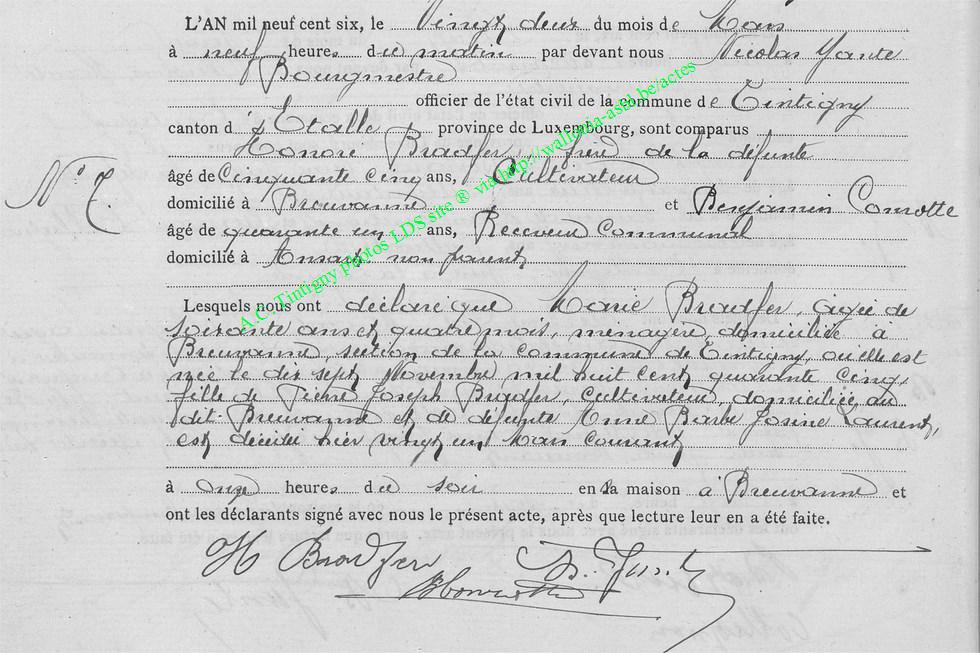 L'AN mil neuf cent six, le Vingt deux du mois de Mars
à neuf heures du matin par devant nous Nicolas Yante
Bourgmestre
officier de l'état civil de la commune de Tintigny
canton d'Etalle province de Luxembourg, sont comparus
Honoré Bradfer, frère de la défunte
âgé de Cinquante cinq ans, Cultivateur
domicilié à Breuvanne et Benjamin Cornette
N° 7.
âgé de quarante un ans, Receveur Communal
domicilié à Ansart non parent
Lesquels nous ont déclaré que Marie Bradfer, âgée de
soixante ans et quatre mois, ménagère, domiciliée à
Breuvanne, section de la commune de Tintigny, où elle est
née le dix sept Novembre mil huit cent quarante cinq,
fille de Pierre Joseph Bradfer, cultivateur, domicilié au
dit Breuvanne et de défunte Anne Barbe Josine Laurent,
est décédée hier vingt un Mars courant
à onze heures du soir en sa maison à Breuvanne et
ont les déclarants signé avec nous le présent acte, après que lecture leur en a été faite.
H Bradfer
A.C. Tintigny photos LDS site ® via http://wallonia-asbl.be/actes